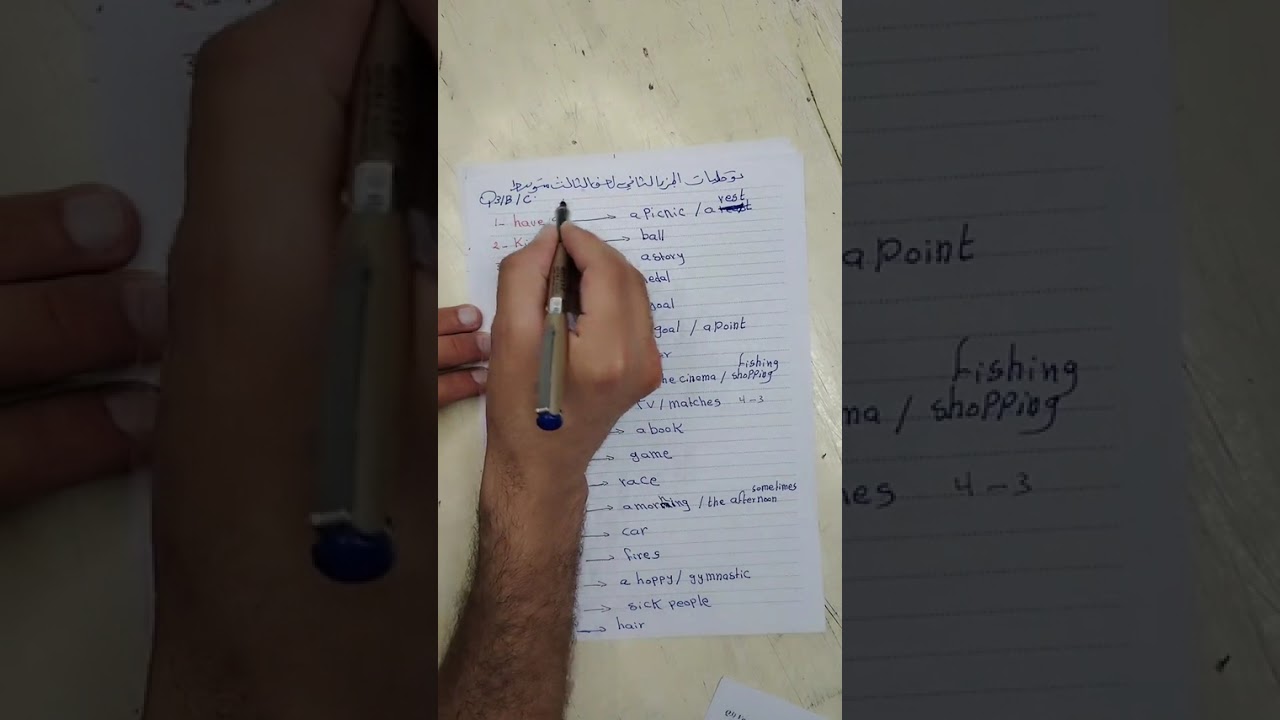 توصيلات الجزء الثاني للصف الثالث متوسط
Q3/B/C
1- have → a picnic / a rest
2- Ki → ball
a story
medal
goal
goal / a point
the cinema / shopping fishing
TV / matches 4-3
→ a book
→ game
→ race
→ a morning / the afternoon sometimes
→ car
→ fires
→ a hoppy / gymnastic
→ sick people
→ hair